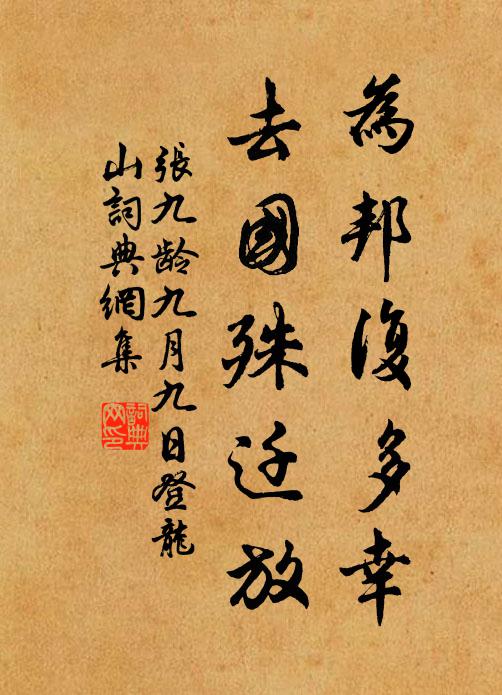 為邦復多幸
去國殊迁放
張九龄九月九日登龍
山詞典網集
詞典
网印